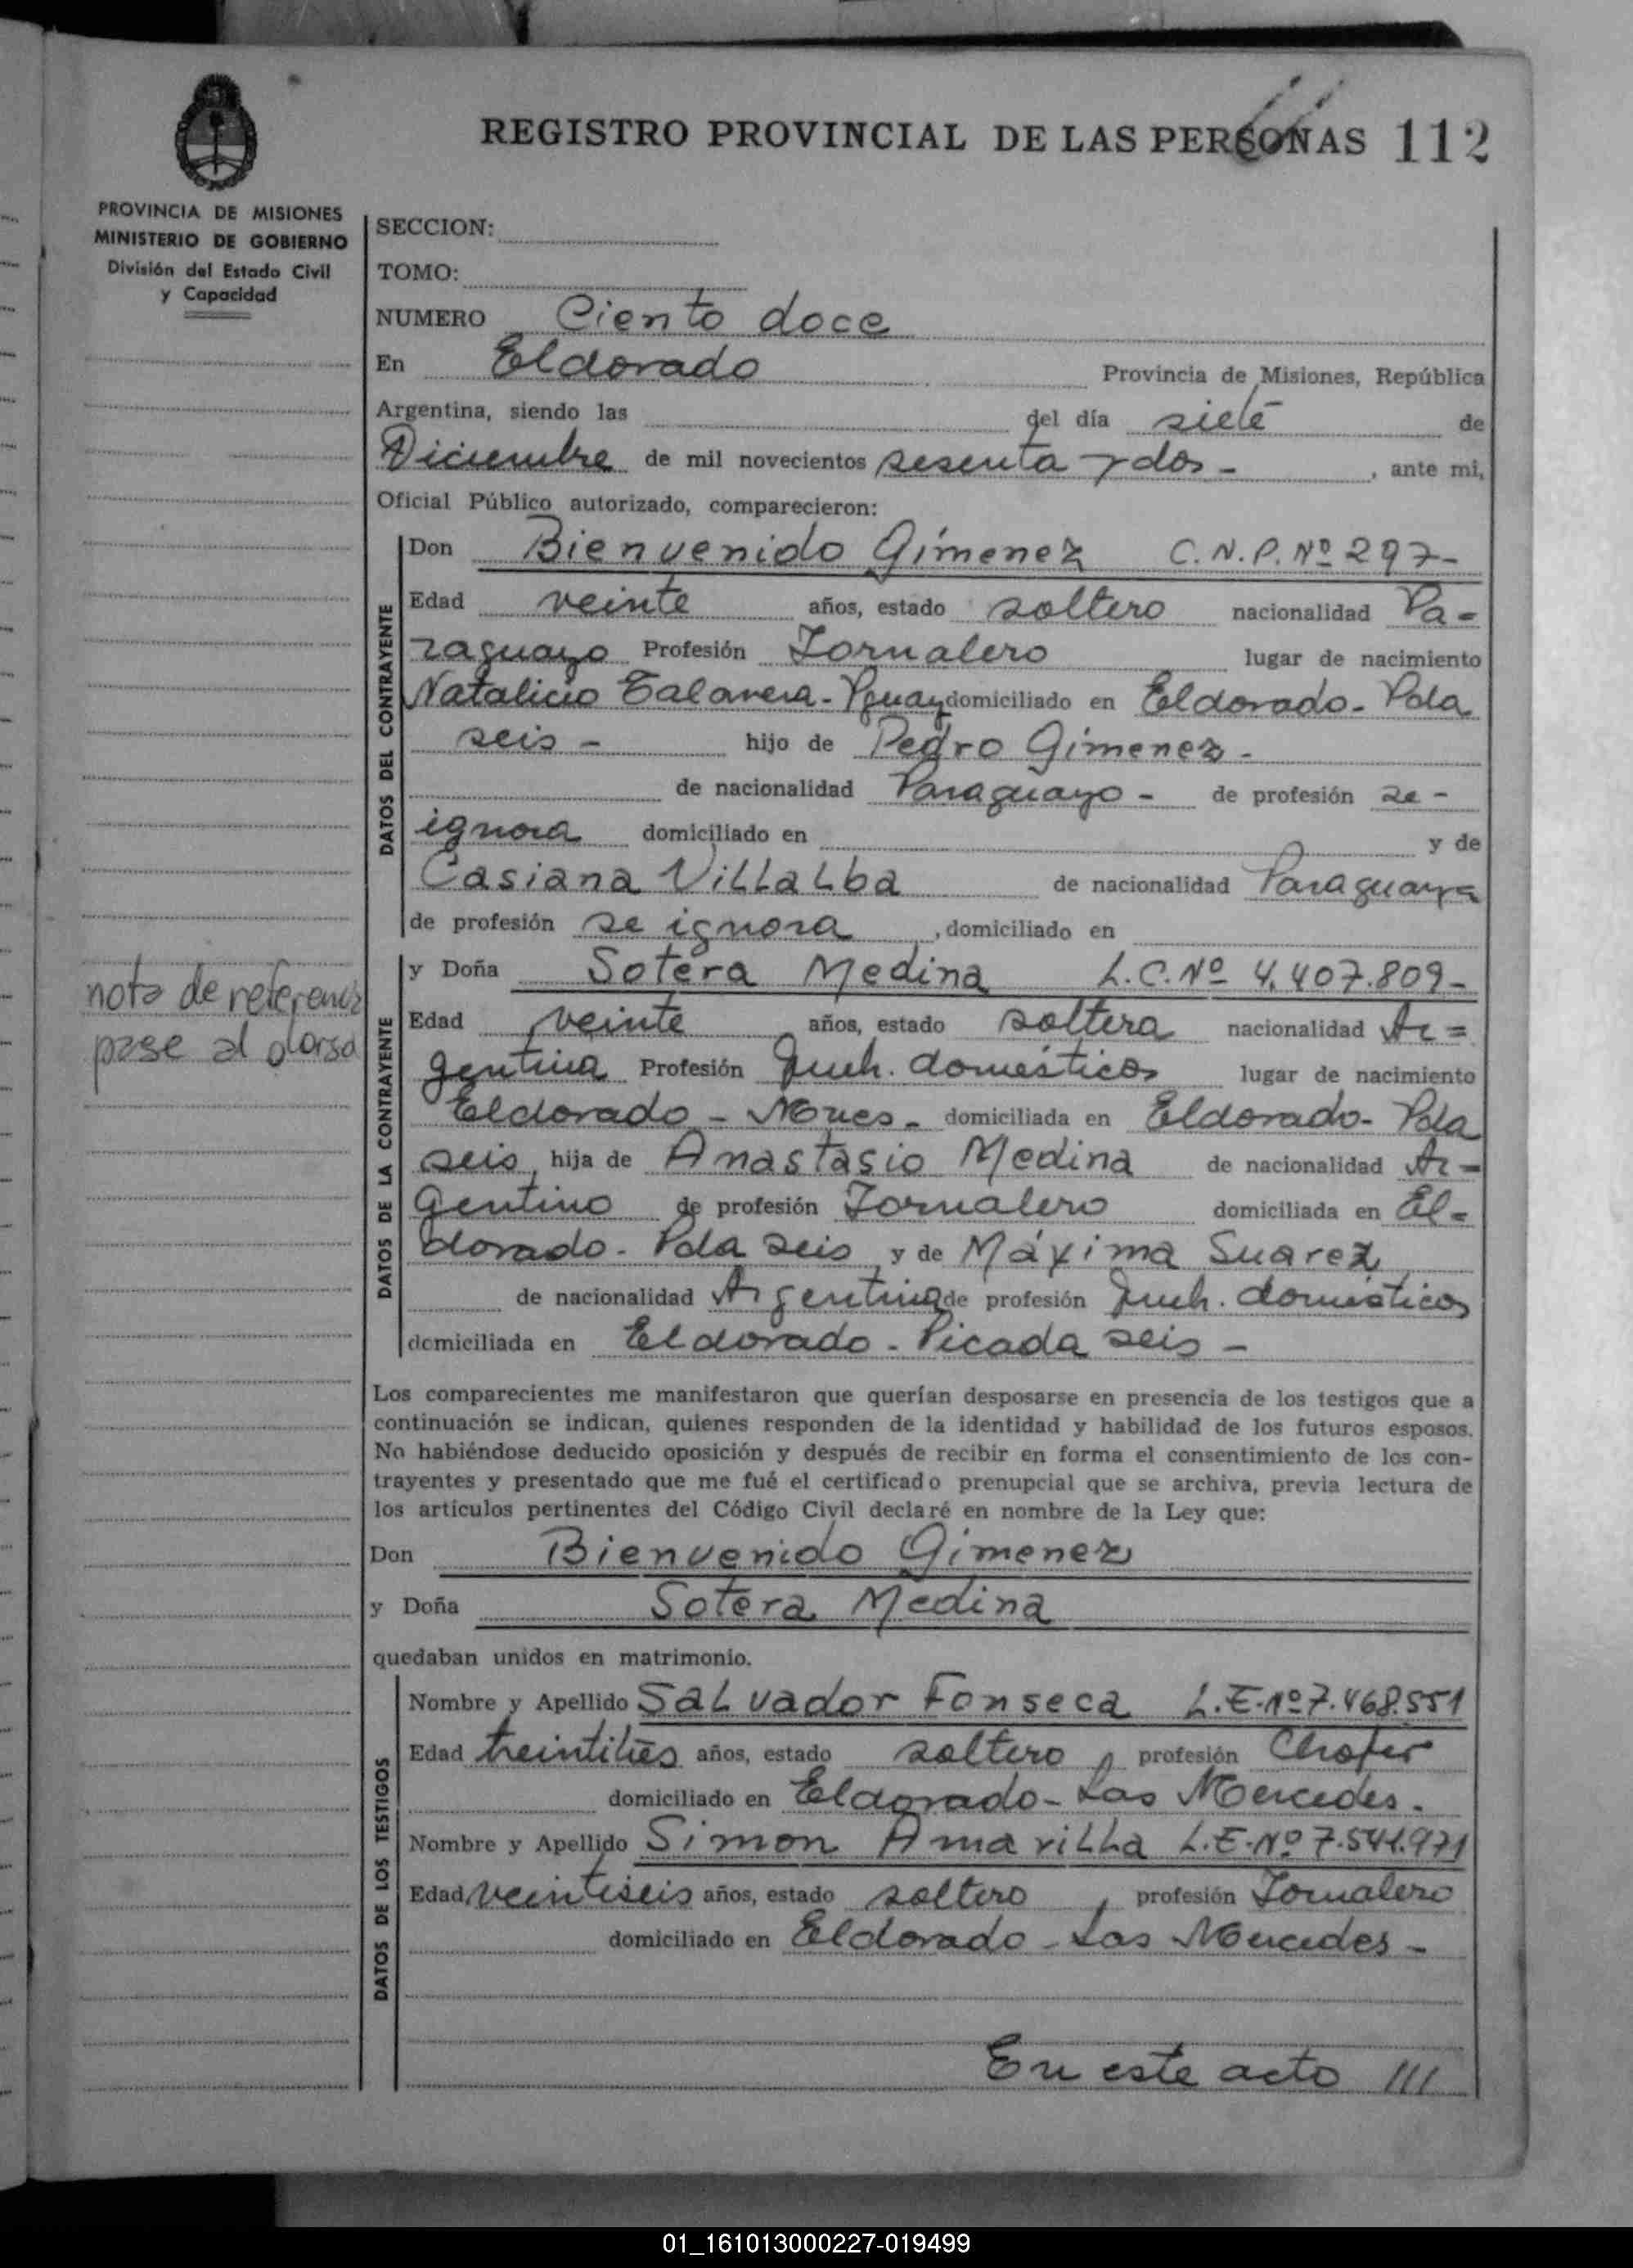 REGISTRO PROVINCIAL DE LAS PERSONAS 112
PROVINCIA DE MISIONES
MINISTERIO DE GOBIERNO
División del Estado Civil
y Capacidad
SECCION:
TOMO:
NUMERO Ciento doce
En Eldorado Provincia de Misiones, República
Argentina, siendo las del día siete de
Diciembre de mil novecientos sesenta y dos - , ante mi,
Oficial Público autorizado, comparecieron:
DATOS DEL CONTRAYENTE
Don Bienvenido Gimenez C.N.P. Nº 297-
Edad veinte años, estado soltero nacionalidad Pa-
raguayo Profesión Jornalero lugar de nacimiento
Natalicio Talavera - Pguay domiciliado en Eldorado - Pda
seis - hijo de Pedro Gimenez -
de nacionalidad Paraguayo - de profesión se -
ignora domiciliado en y de
Casiana Villalba de nacionalidad Paraguaya
de profesión se ignora , domiciliado en
DATOS DE LA CONTRAYENTE
y Doña Sotera Medina L.C. Nº 4.407.809-
Edad veinte años, estado soltera nacionalidad Ar=
gentina Profesión Queh. domésticos lugar de nacimiento
Eldorado - Mnes - domiciliada en Eldorado - Pda
seis, hija de Anastasio Medina de nacionalidad Ar-
gentino de profesión Jornalero domiciliada en El=
dorado - Pda seis, y de Máxima Suarez
de nacionalidad Argentina de profesión Queh. domésticos
domiciliada en Eldorado - Picada seis -
nota de referencia
pase al dorso
Los comparecientes me manifestaron que querían desposarse en presencia de los testigos que a
continuación se indican, quienes responden de la identidad y habilidad de los futuros esposos.
No habiéndose deducido oposición y después de recibir en forma el consentimiento de los con-
trayentes y presentado que me fué el certificado prenupcial que se archiva, previa lectura de
los artículos pertinentes del Código Civil declaré en nombre de la Ley que:
Don Bienvenido Gimenez
y Doña Sotera Medina
quedaban unidos en matrimonio.
DATOS DE LOS TESTIGOS
Nombre y Apellido Salvador Fonseca L.E. Nº 7.468.551
Edad treintitrés años, estado soltero, profesión Chofer
domiciliado en Eldorado - Las Mercedes.
Nombre y Apellido Simon Amarilla L.E. Nº 7.541.971
Edad veintiseis años, estado soltero, profesión Jornalero
domiciliado en Eldorado - Las Mercedes -
En este acto ///
01_161013000227-019499